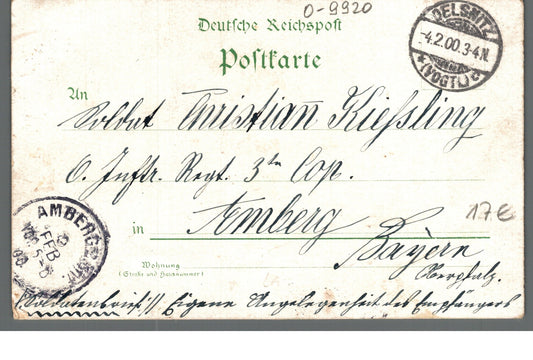 O-9920
Deutsche Reichspost
Postkarte
OELSNITZ
-4.2.00.3-4.N.
*(VOGTL.)c
An
Soldat Christian Kießling
6. Inftr. Regt. 3te Cop.
in Amberg
17€
Bayern
Wohnung
(Straße und Hausnummer)
Oberpfalz.
AMBERG
FEB
00
(Soldatenbrief!) Eigene Angelegenheit des Empfängers